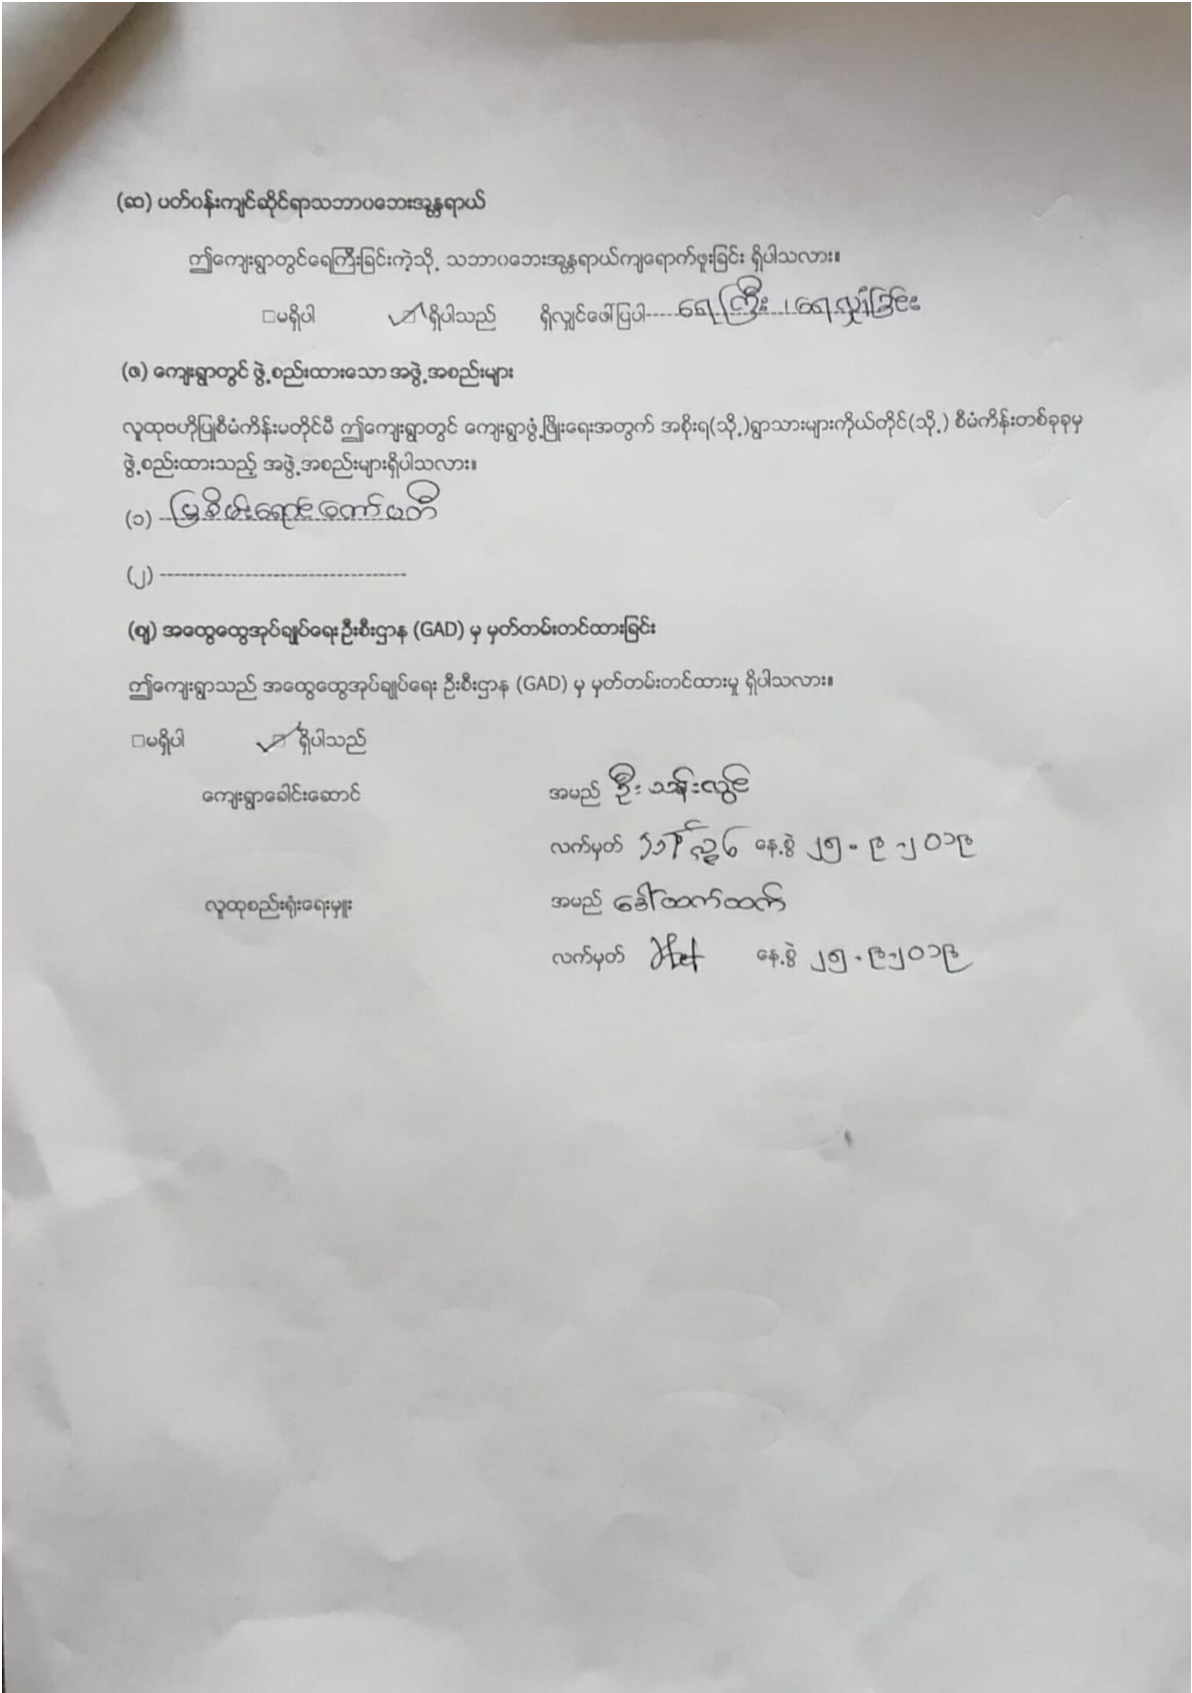 (ဆ) ပတ်ဝန်းကျင်ဆိုင်ရာသဘာဝဘေးအန္တရာယ်
ဤကျေးရွာတွင်ရေကြီးခြင်းကဲ့သို့ သဘာဝဘေးအန္တရာယ်ကျရောက်ဖူးခြင်း ရှိပါသလား။
□မရှိပါ ☑ရှိပါသည် ရှိလျှင်ဖေါ်ပြပါ-----ရေကြီး ၊ ရေလျှံခြင်း
(ဇ) ကျေးရွာတွင် ဖွဲ့စည်းထားသော အဖွဲ့အစည်းများ
လူထုဗဟိုပြုစီမံကိန်းမတိုင်မီ ဤကျေးရွာတွင် ကျေးရွာဖွံ့ဖြိုးရေးအတွက် အစိုးရ(သို့)ရွာသားများကိုယ်တိုင်(သို့) စီမံကိန်းတစ်ခုခုမှ
ဖွဲ့စည်းထားသည့် အဖွဲ့အစည်းများရှိပါသလား။
(၁) မြစိမ်းရောင်ကော်မတီ
(၂) -----------------------------------
(ဈ) အထွေထွေအုပ်ချုပ်ရေးဦးစီးဌာန (GAD) မှ မှတ်တမ်းတင်ထားခြင်း
ဤကျေးရွာသည် အထွေထွေအုပ်ချုပ်ရေး ဦးစီးဌာန (GAD) မှ မှတ်တမ်းတင်ထားမှု ရှိပါသလား။
□မရှိပါ ☑ရှိပါသည်
ကျေးရွာခေါင်းဆောင် အမည် ဦးသန်းလွင်
လက်မှတ် နေ့စွဲ ၂၅-၉-၂၀၁၉
လူထုစည်းရုံးရေးမှူး အမည် ဒေါ်ထက်ထက်
လက်မှတ် Htet နေ့စွဲ ၂၅-၉-၂၀၁၉